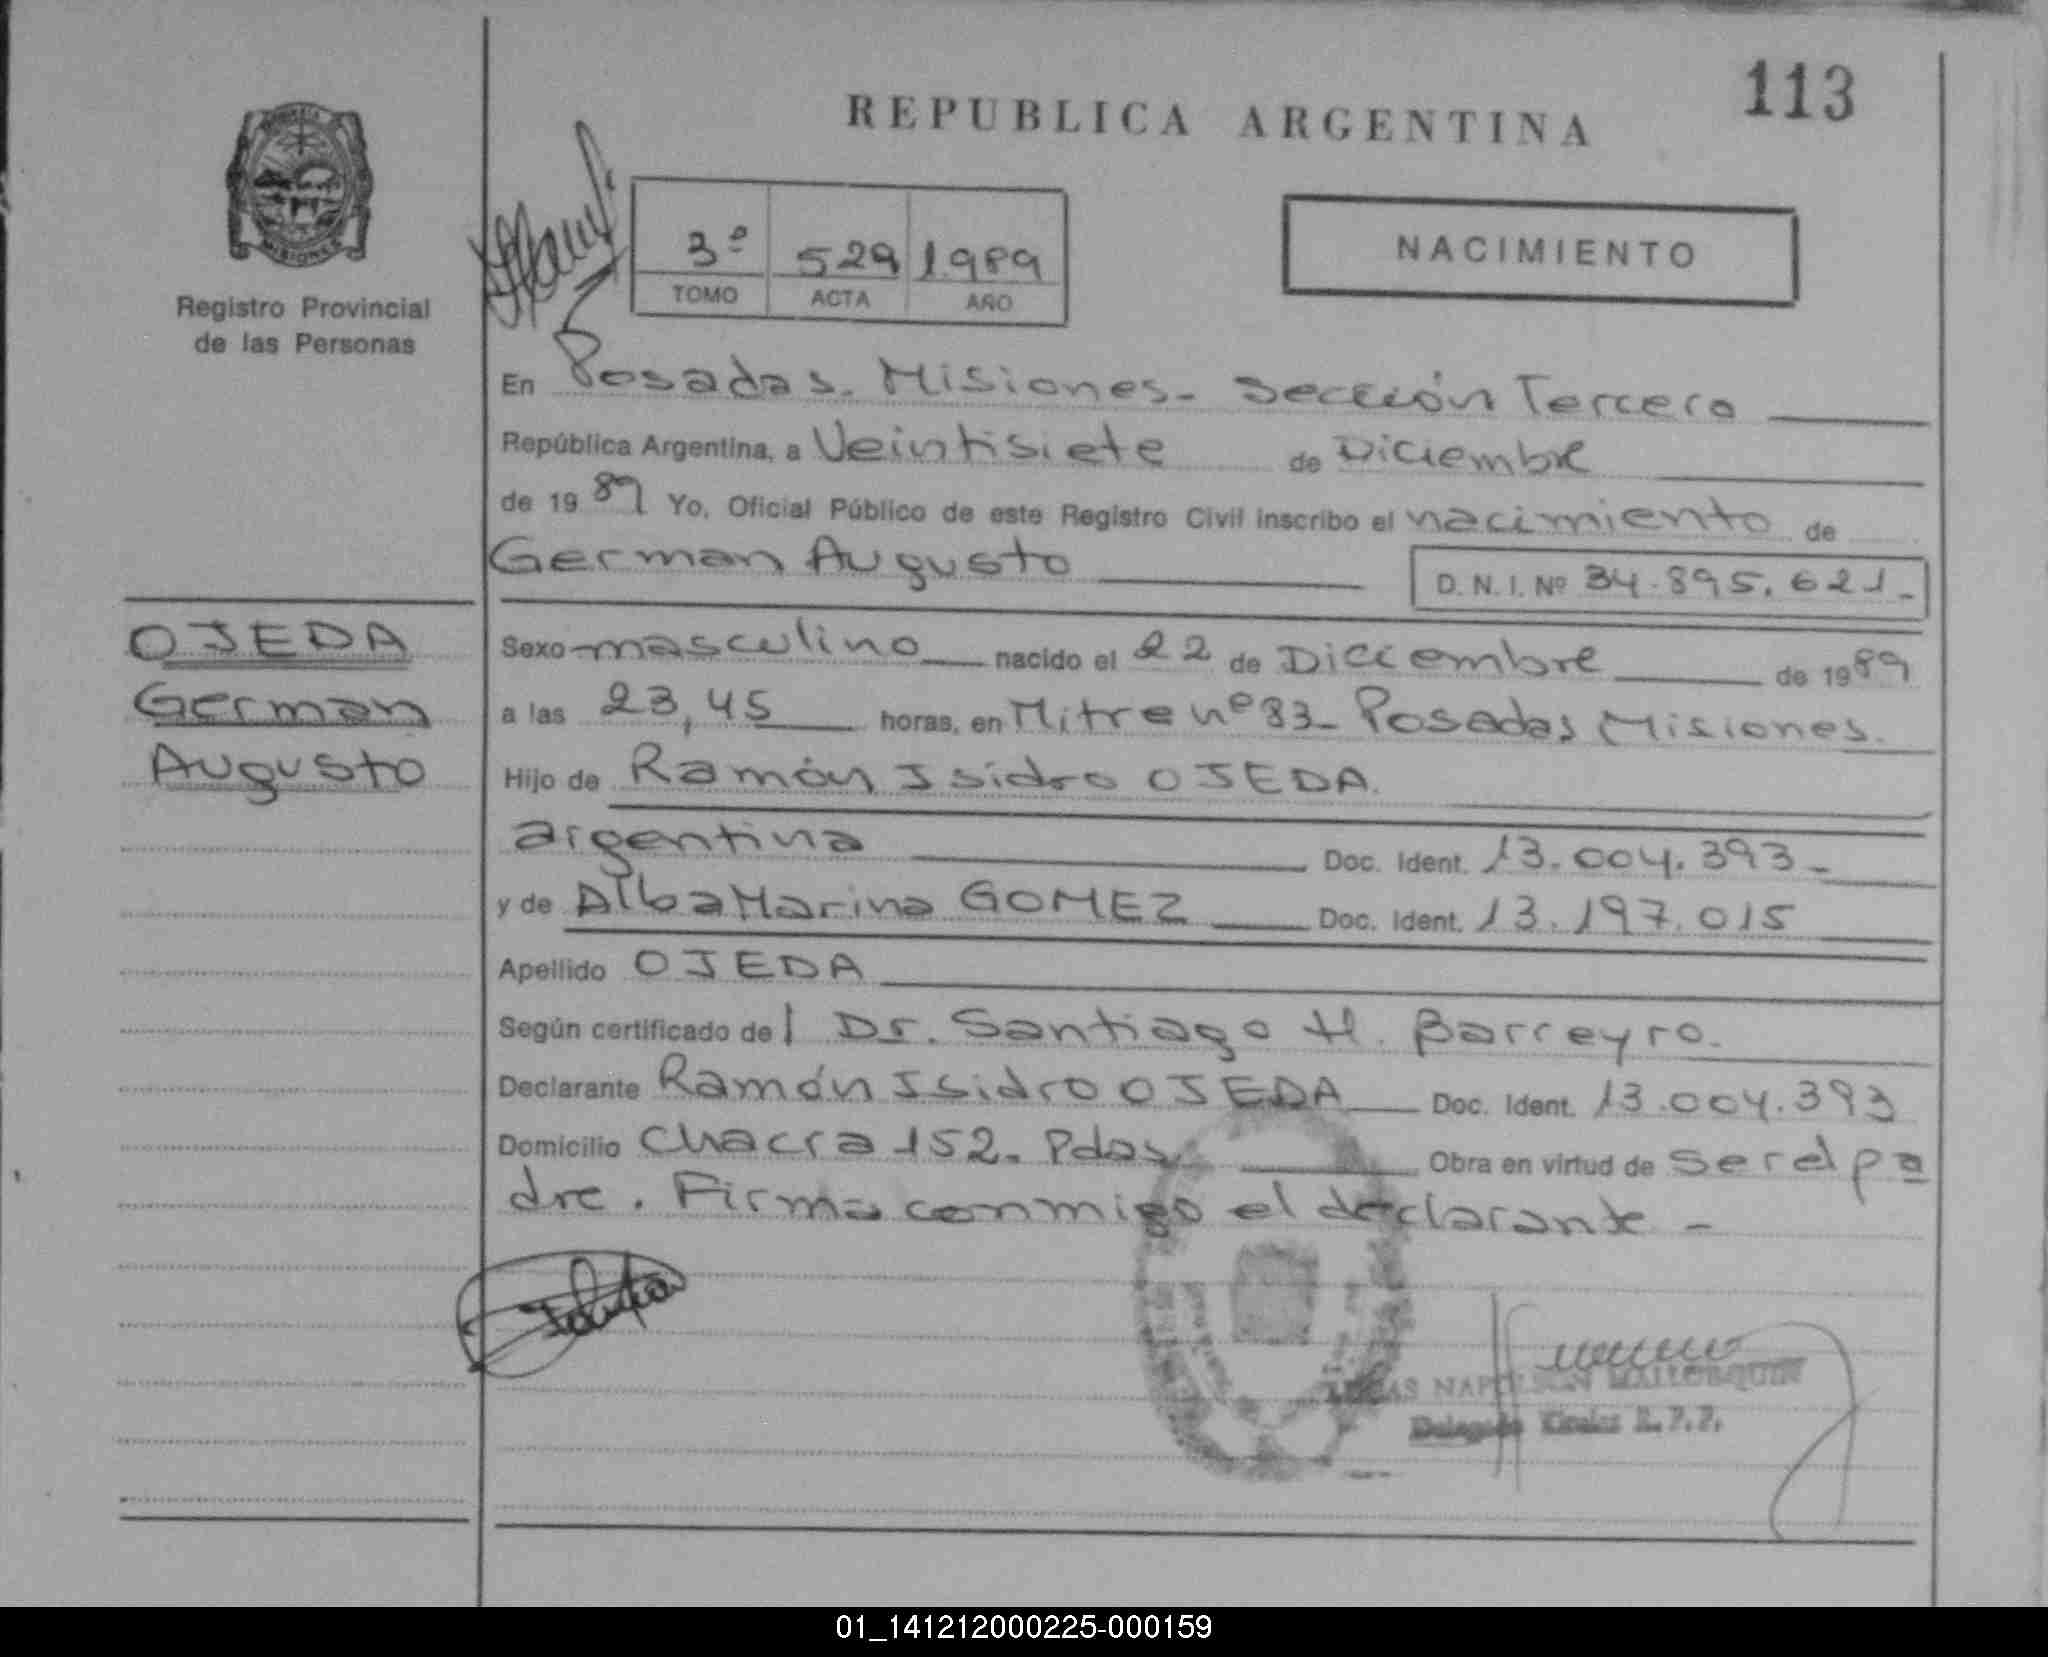 113
REPUBLICA ARGENTINA
MISIONES
Registro Provincial
de las Personas
3º 529 1989
TOMO ACTA AÑO
NACIMIENTO
En Posadas. Misiones- Sección Tercera
República Argentina, a Veintisiete de Diciembre
de 1989 Yo, Oficial Público de este Registro Civil inscribo el nacimiento de
German Augusto D.N.I. Nº 34.895.621-
OJEDA
German
Augusto
Sexo masculino nacido el 22 de Diciembre de 1989
a las 23,45 horas, en Mitre nº 83- Posadas Misiones.
Hijo de Ramón Isidro OJEDA.
argentina Doc. Ident. 13.004.393-
y de Alba Marina GOMEZ Doc. Ident. 13.197.015
Apellido OJEDA
Según certificado del Dr. Santiago H. Barreyro.
Declarante Ramón Isidro OJEDA Doc. Ident. 13.004.393
Domicilio Chacra 152. Pdas. Obra en virtud de ser el pa
dre. Firma conmigo el declarante -
NAPOLEON MALLORQUIN
01_141212000225-000159